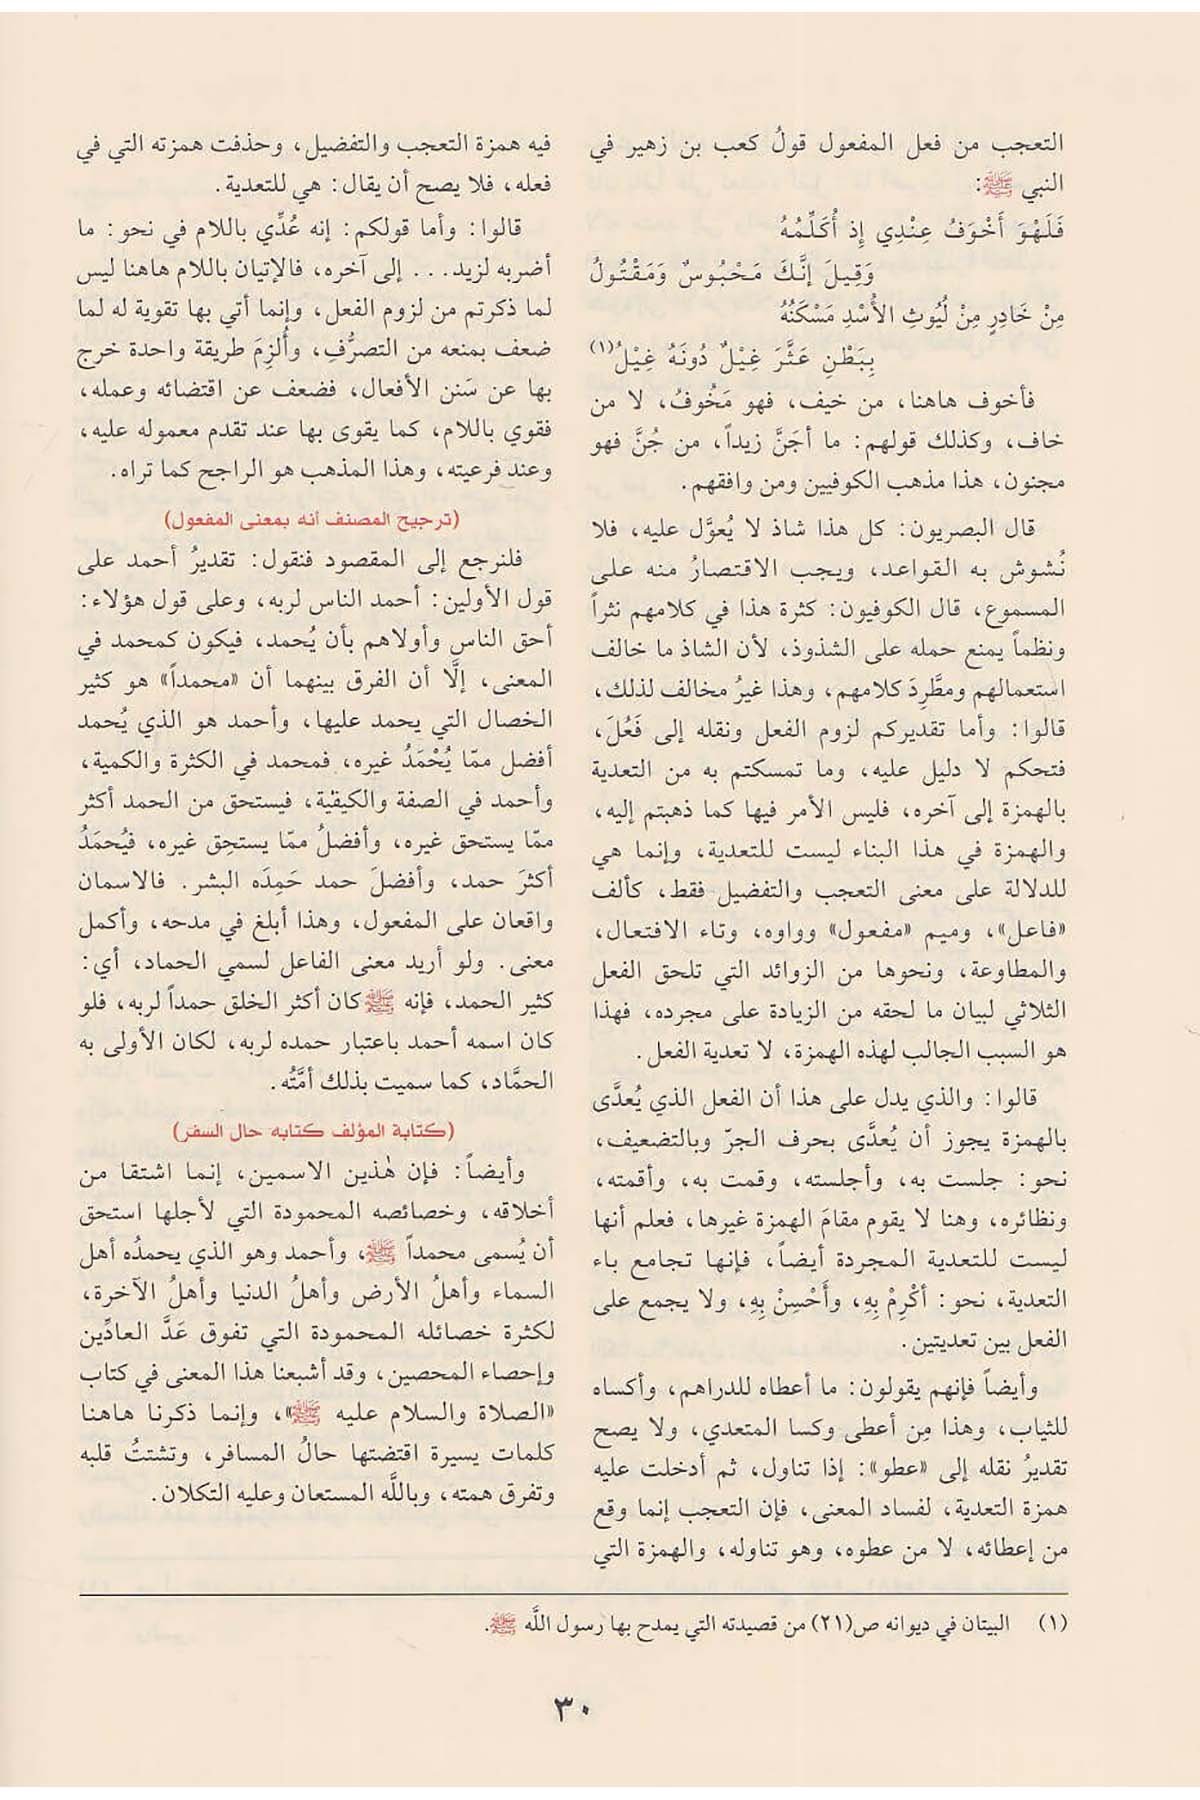 التعجب من فعل المفعول قولُ كعب بن زهير في
النبي ﷺ:
فَلَهْوَ أَخْوَفُ عِنْدِي إِذ أُكَلِّمُهُ
وَقِيلَ إِنَّكَ مَحْبُوسٌ وَمَقْتُولُ
مِنْ خَادِرٍ مِنْ لُيُوثِ الأُسْدِ مَسْكَنُهُ
بِبَطْنِ عَثَّرَ غِيْلٌ دُونَهُ غِيْلُ(١)
فأخوف هاهنا، من خيف، فهو مَخُوفُ، لا من
خاف، وكذلك قولهم: ما أجَنَّ زيداً، من جُنَّ فهو
مجنون، هذا مذهب الكوفيين ومن وافقهم.
قال البصريون: كل هذا شاذ لا يُعوَّل عليه، فلا
نُشوش به القواعد، ويجب الاقتصارُ منه على
المسموع، قال الكوفيون: كثرة هذا في كلامهم نثراً
ونظماً يمنع حمله على الشذوذ، لأن الشاذ ما خالف
استعمالهم ومطَّرِدَ كلامهم، وهذا غيرُ مخالف لذلك،
قالوا: وأما تقديركم لزوم الفعل ونقله إلى فَعُلَ،
فتحكم لا دليل عليه، وما تمسكتم به من التعدية
بالهمزة إلى آخره، فليس الأمر فيها كما ذهبتم إليه،
والهمزة في هذا البناء ليست للتعدية، وإنما هي
للدلالة على معنى التعجب والتفضيل فقط، كألف
«فاعل»، وميم «مفعول» وواوه، وتاء الافتعال،
والمطاوعة، ونحوها من الزوائد التي تلحق الفعل
الثلاثي لبيان ما لحقه من الزيادة على مجرده، فهذا
هو السبب الجالب لهذه الهمزة، لا تعدية الفعل.
قالوا: والذي يدل على هذا أن الفعل الذي يُعدَّى
بالهمزة يجوز أن يُعدَّى بحرف الجرّ وبالتضعيف،
نحو: جلست به، وأجلسته، وقمت به، وأقمته،
ونظائره، وهنا لا يقوم مقامَ الهمزة غيرها، فعلم أنها
ليست للتعدية المجردة أيضاً، فإنها تجامع باء
التعدية، نحو: أَكْرِمْ بِهِ، وأَحْسِنْ بِهِ، ولا يجمع على
الفعل بين تعديتين.
وأيضاً فإنهم يقولون: ما أعطاه للدراهم، وأكساه
للثياب، وهذا مِن أعطى وكسا المتعدي، ولا يصح
تقديرُ نقله إلى «عطو»: إذا تناول، ثم أدخلت عليه
همزة التعدية، لفساد المعنى، فإن التعجب إنما وقع
من إعطائه، لا من عطوه، وهو تناوله، والهمزة التي
فيه همزة التعجب والتفضيل، وحذفت همزته التي في
فعله، فلا يصح أن يقال: هي للتعدية.
قالوا: وأما قولكم: إنه عُدِّي باللام في نحو: ما
أضربه لزيد... إلى آخره، فالإتيان باللام هاهنا ليس
لما ذكرتم من لزوم الفعل، وإنما أتي بها تقوية له لما
ضعف بمنعه من التصرُّفِ، وأُلزِمَ طريقة واحدة خرج
بها عن سَنن الأفعال، فضعف عن اقتضائه وعمله،
فقوي باللام، كما يقوى بها عند تقدم معموله عليه،
وعند فرعيته، وهذا المذهب هو الراجح كما تراه.
(ترجيح المصنف أنه بمعنى المفعول)
فلنرجع إلى المقصود فنقول: تقديرُ أحمد على
قول الأولين: أحمد الناس لربه، وعلى قول هؤلاء:
أحق الناس وأولاهم بأن يُحمد، فيكون كمحمد في
المعنى، إلَّا أن الفرق بينهما أن «محمداً» هو كثير
الخصال التي يحمد عليها، وأحمد هو الذي يُحمد
أفضل ممّا يُحْمَدُ غيره، فمحمد في الكثرة والكمية،
وأحمد في الصفة والكيفية، فيستحق من الحمد أكثر
ممّا يستحق غيره، وأفضلُ ممّا يستحِق غيره، فيُحمَدُ
أكثرَ حمد، وأفضلَ حمد حَمِدَه البشر. فالاسمان
واقعان على المفعول، وهذا أبلغ في مدحه، وأكمل
معنى. ولو أريد معنى الفاعل لسمي الحماد، أي:
كثير الحمد، فإنه ﷺ كان أكثر الخلق حمداً لربه، فلو
كان اسمه أحمد باعتبار حمده لربه، لكان الأولى به
الحمَّاد، كما سميت بذلك أمَّتُه.
(كتابة المؤلف كتابه حال السفر)
وأيضاً: فإن هٰذين الاسمين، إنما اشتقا من
أخلاقه، وخصائصه المحمودة التي لأجلها استحق
أن يُسمى محمداً ﷺ، وأحمد وهو الذي يحمدُه أهل
السماء وأهلُ الأرض وأهلُ الدنيا وأهلُ الآخرة،
لكثرة خصائله المحمودة التي تفوق عَدَّ العادِّين
وإحصاء المحصين، وقد أشبعنا هذا المعنى في كتاب
«الصلاة والسلام عليه ﷺ»، وإنما ذكرنا هاهنا
كلمات يسيرة اقتضتها حالُ المسافر، وتشتتُ قلبه
وتفرق همته، وباللَّه المستعان وعليه التكلان.
(١) البيتان في ديوانه ص(٢١) من قصيدته التي يمدح بها رسول اللَّه ﷺ.
٣٠